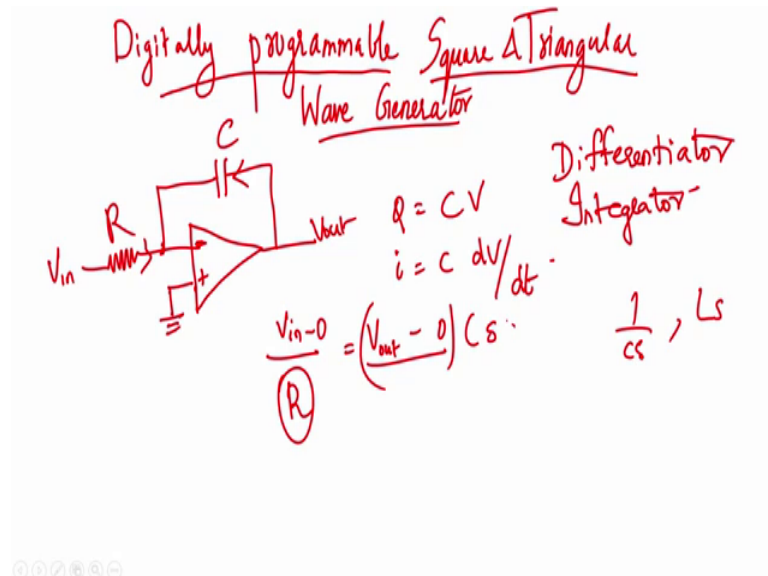 Digitally programmable Square & Triangular
Wave Generator
C
R
Vin
Vout
-
+
Q = CV
i = C dV/dt
Differentiator
Integrator
Vin-0/R = (Vout - 0) Cs
1/cs , Ls